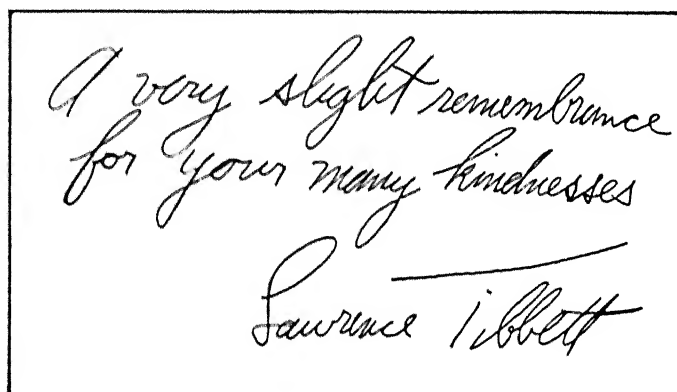 A very slight remembrance
for your many kindnesses
Lawrence Tibbett